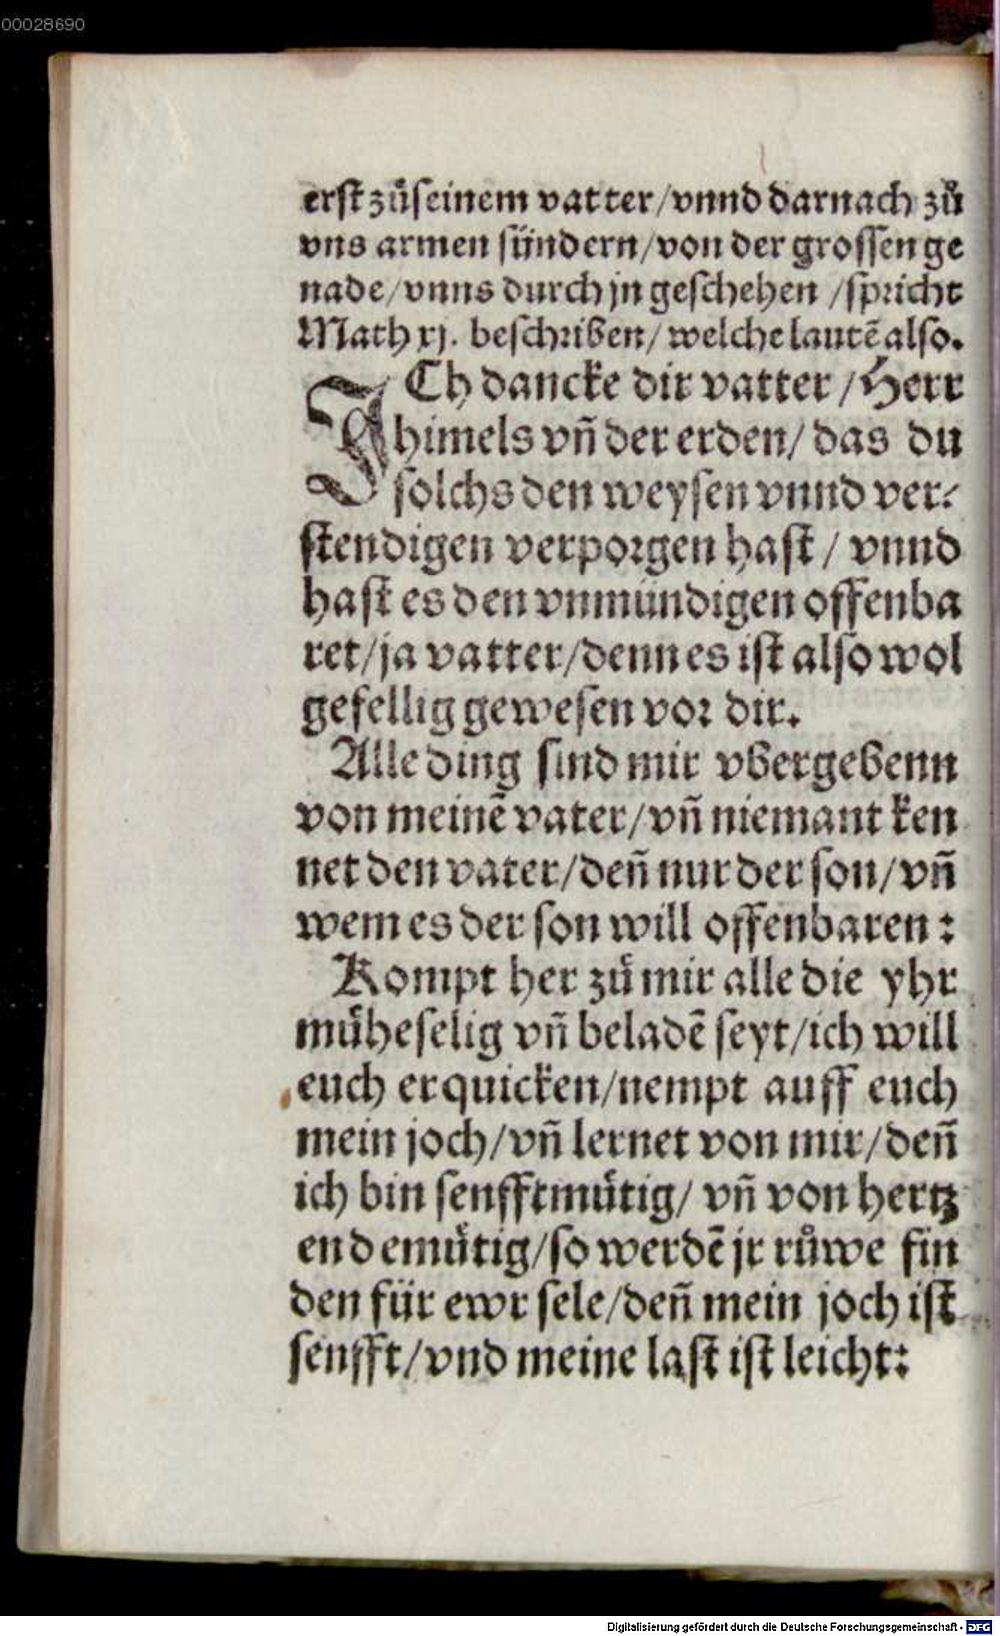 00028690
erst zůseinem vatter/vnnd darnach zů
vns armen sündern/von der grossen ge
nade/vnns durch jn geschehen /spricht
Math xj. beschriben/ welche lautẽ also.
ICh dancke dir vatter /Herr
himels vñ der erden/ das du
solchs den weysen vnnd ver⸗
stendigen verporgen hast / vnnd
hast es den vnmündigen offenba
ret/ja vatter/denn es ist also wol
gefellig gewesen vor dir.
Alle ding sind mir vbergebenn
von meinẽ vater/vñ niemant ken
net den vater/deñ nur der son/vñ
wem es der son will offenbaren :
Kompt her zů mir alle die yhr
můheselig vñ beladẽ seyt/ich will
euch erquicken/nempt auff euch
mein joch/vñ lernet von mir/deñ
ich bin senfftmůtig/ vñ von hertz
en demůtig/so werdẽ jr růwe fin
den für ewr sele/deñ mein joch ist
senfft/vnd meine last ist leicht:
Digitalisierung gefördert durch die Deutsche Forschungsgemeinschaft - DFG